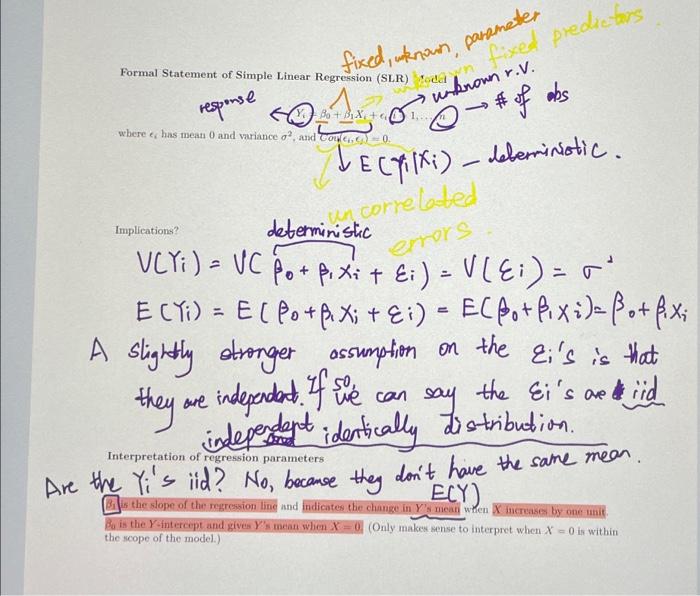 fixed, unknown, parameter
Formal Statement of Simple Linear Regression (SLR) Model
known fixed predictors.
response
unknown r.v.
Yᵢ = β₀ + β₁Xᵢ + ϵᵢ, i = 1, ..., n
→ # of obs
where ϵᵢ has mean 0 and variance σ², and Cov(ϵᵢ, ϵⱼ) = 0.
↓ E(Yᵢ|Xᵢ) – deterministic.
uncorrelated
errors.
Implications?
deterministic
V(Yi) = V( β₀ + β₁ Xi + εi) = V(εi) = σ²
E(Yi) = E( β₀ + β₁ Xi + εi) = E(β₀ + β₁ Xi) = β₀ + β₁Xi
A slightly stronger assumption on the εi's is that
they are independent. If so, we can say the εi's are iid
independent and identically distribution.
Interpretation of regression parameters
Are the Yi's iid? No, because they don't have the same mean.
E(Y)
β₁ is the slope of the regression line and indicates the change in Y's mean when X increases by one unit.
β₀ is the Y-intercept and gives Y's mean when X = 0. (Only makes sense to interpret when X = 0 is within
the scope of the model.)